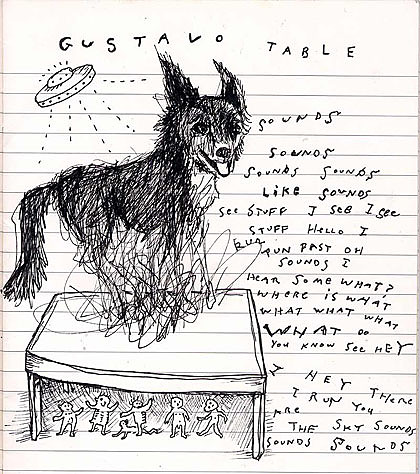 GUSTAVO TABLE
SOUNDS
SOUNDS
SOUNDS SOUNDS
LIKE SOUNDS
SEE STUFF I SEE I SEE
STUFF HELLO I
RUN
RUN PAST OH
SOUNDS I
HEAR SOME WHAT?
WHERE IS WHAT
WHAT WHAT WHAT
WHAT DO
YOU KNOW SEE HEY
I HEY THERE
I RUN YOU
ARE THE SKY SOUNDS
SOUNDS SOUNDS